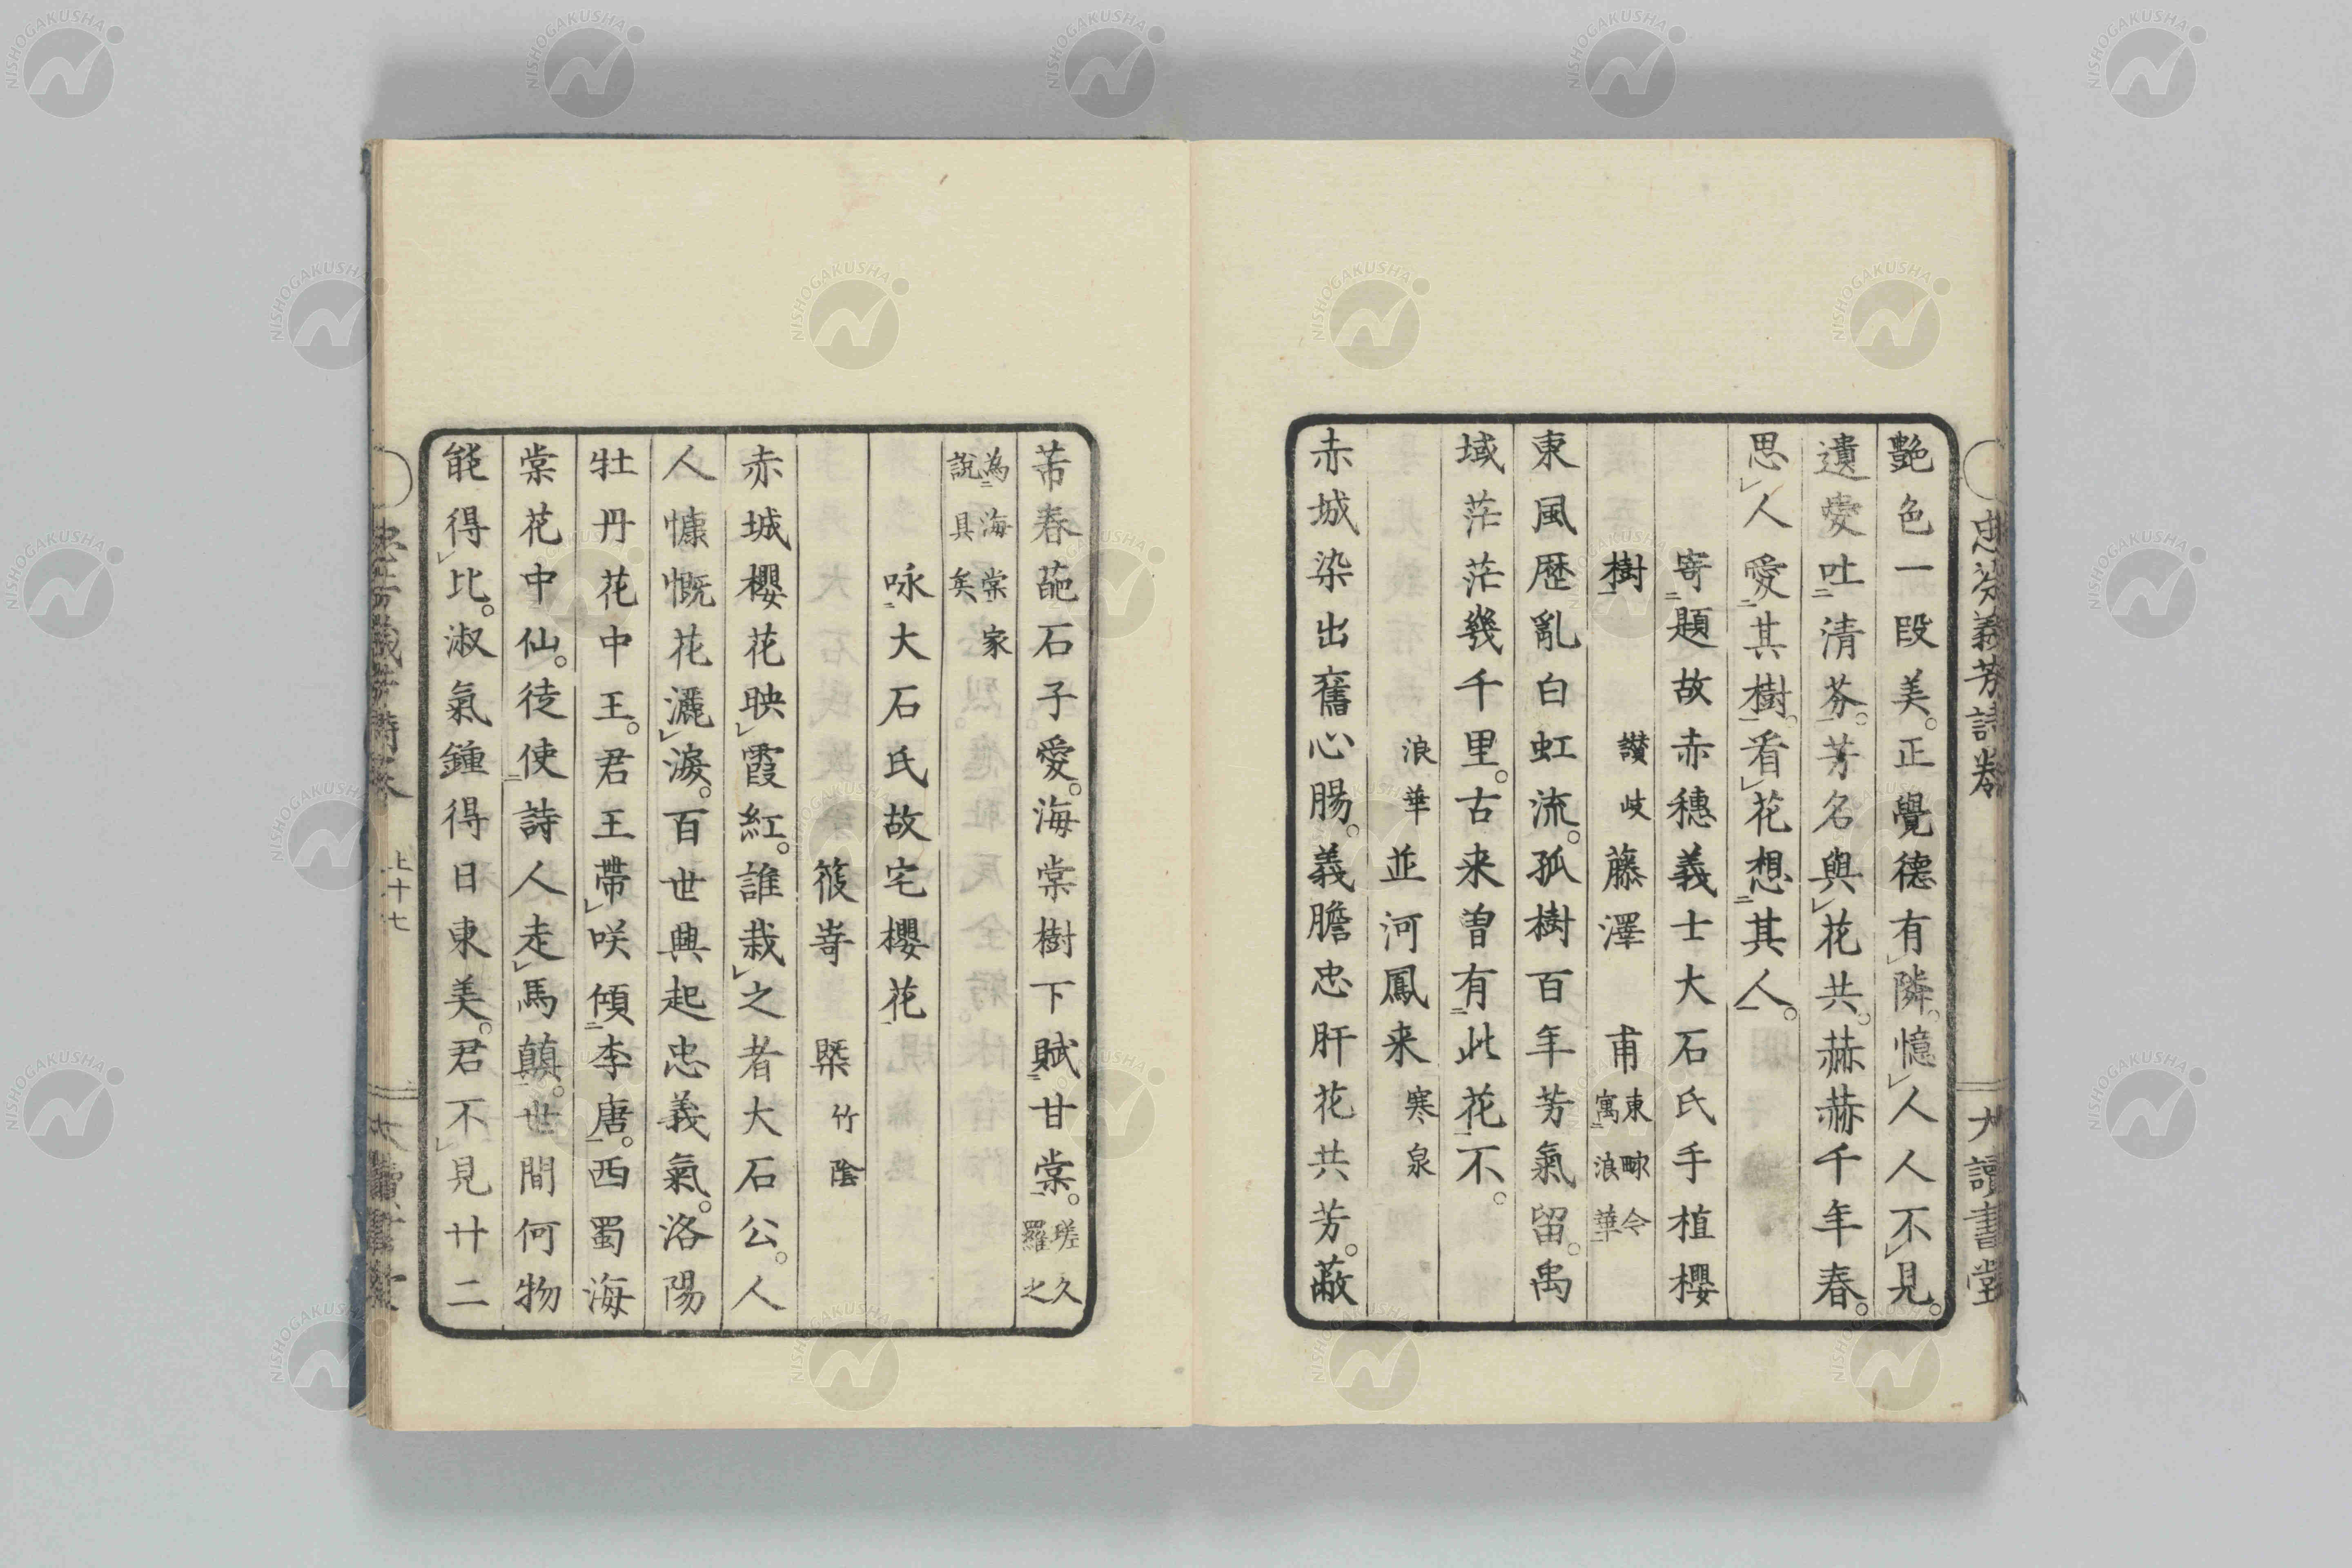 艶色一段美。正覺德有隣。憶人人不見。
遺愛吐清芬。芳名與花共。赫赫千年春。
思人愛其樹。看花想其人。
寄題故赤穗義士大石氏手植櫻
樹 讃岐 藤澤 甫 東畡今寓浪華
東風歴亂白虹流。孤樹百年芳氣留。禹
域茫茫幾千里。古来曽有此花不。
浪華 並河鳳来 寒泉
赤城染出舊心腸。義膽忠肝花共芳。蔽
芾春葩石子愛。海棠樹下賦甘棠。瑳久羅之
為海棠家説具矣
咏大石氏故宅櫻花
篠嵜 槩 竹陰
赤城櫻花映霞紅。誰栽之者大石公。人
人慷慨花灑淚。百世興起忠義氣。洛陽
牡丹花中王。君王帶咲傾李唐。西蜀海
棠花中仙。徒使詩人走馬顛。世間何物
能得比。淑氣鍾得日東美。君不見廿二
忠芬義芳詩巻 大讀書堂
上十七
NISHOGAKUSHA